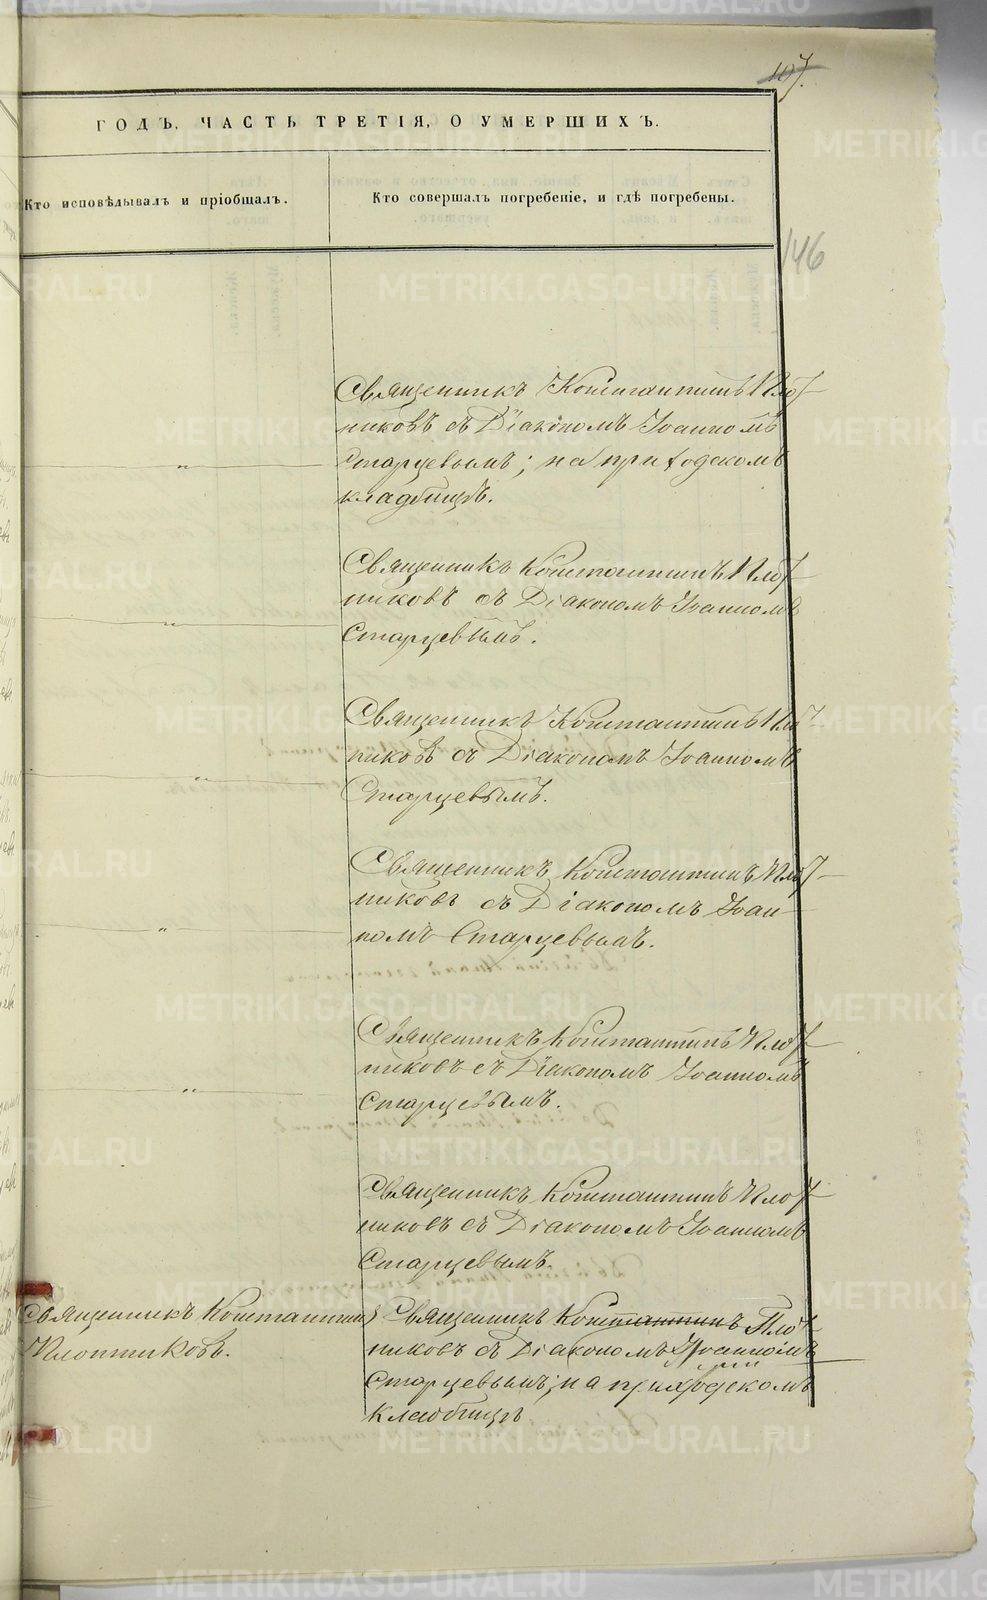 107.
ГОДЪ, ЧАСТЬ ТРЕТІЯ, О УМЕРШИХЪ.
Кто исповѣдывалъ и пріобщалъ.
Кто совершалъ погребеніе, и гдѣ погребены.
146
Священникъ Константинъ Плот
никовъ съ Діакономъ Іоанномъ
Старцевымъ; на приходскомъ
кладбищѣ.
Священникъ Константинъ Плот
никовъ съ Діакономъ Іоанномъ
Старцевымъ.
Священникъ Константинъ Плот
никовъ съ Діакономъ Іоанномъ
Старцевымъ.
Священникъ Константинъ Плот
никовъ съ Діакономъ Іоан-
номъ Старцевымъ.
Священникъ Константинъ Плот
никовъ съ Діакономъ Іоанномъ
Старцевымъ.
Священникъ Константинъ Плот
никовъ съ Діакономъ Іоанномъ
Старцевымъ.
Священникъ Константинъ
Плотниковъ.
Священникъ Константинъ Плот
никовъ съ Діакономъ Іоанномъ
Старцевымъ; на приходскомъ
кладбищѣ
METRIKI.GASO-URAL.RU